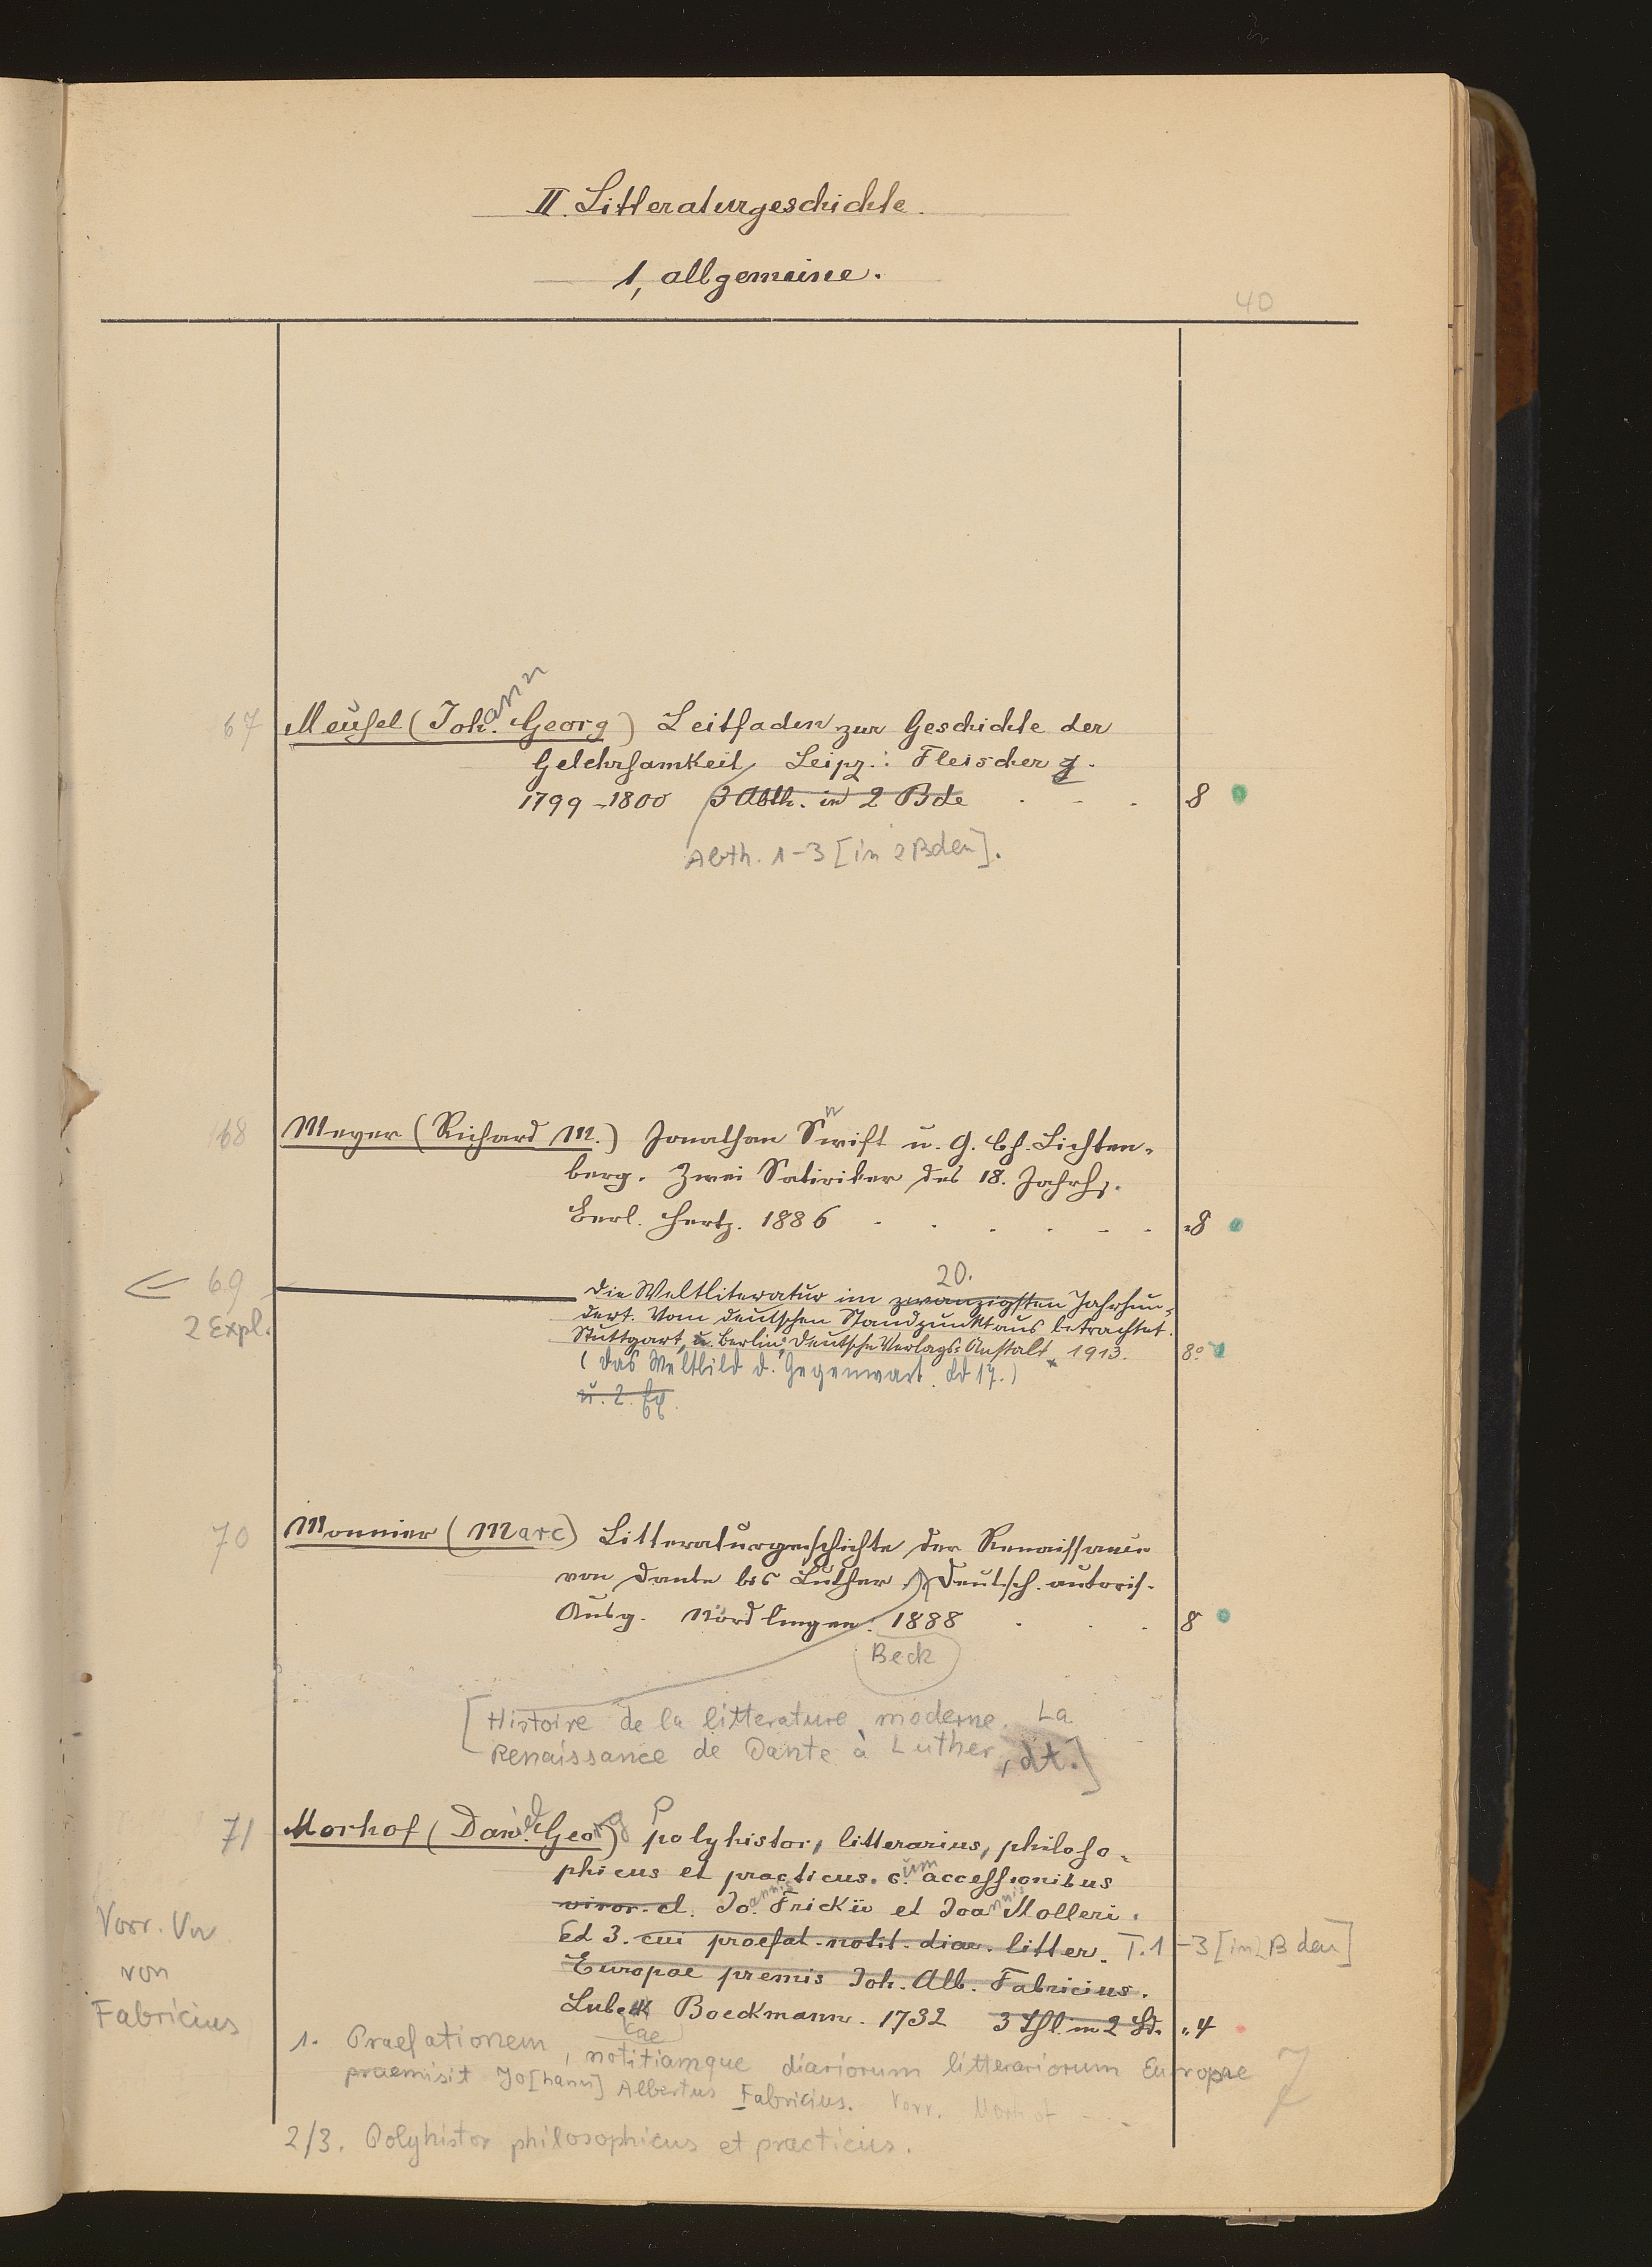 II. Litteraturgeschichte.
1, allgemeine.
40
67 Meusel (Johann Georg) Leitfaden zur Geschichte der
Gelehrsamkeit Leipz.: Fleischer J.
1799-1800 3 Abth. in 2 Bde . - . 8
Abth. 1-3 [in 2 Bden].
68 Meyer (Richard M.) Jonathan Swift u. G. Ch. Lichten-
berg. Zwei Satiriker des 18. Jahrh.
Berl. Hertz. 1886 8
← 69 Die Weltliteratur im zwanzigsten 20. Jahrhun-
2 Expl. dert. Vom deutschen Standpunkt aus betrachtet.
Stuttgart, u. Berlin: Deutsche Verlags-Anstalt 1913. 8°
(Das Weltbild d. Gegenwart. Bd 17.)
u. 2. Ex.
70 Monnier (Marc) Litteraturgeschichte der Renaissance
von Dante bis Luther Deutsch. autoris.
Ausg. Nördlingen: 1888 8
Beck
[Histoire de la litterature moderne. La
Renaissance de Dante à Luther, dt.]
71 Morhof (David Georg) Polyhistor, litterarius, philoso-
phicus et practicus. cum accessionibus
viror. cl. Joannis Frickii et Joannis Molleri.
Ed 3. cui praefat. notit. diar. litter. T. 1-3 [in 2 Bden]
Europae premis Joh. Alb. Fabricius.
Lubecae Boeckmann. 1732 3 Thl. in 2 Bd. 4
Vorr. Vn
von
Fabricius
1. Praefationem, notitiamque diariorum litterariorum Europae
praemisit Jo[hann] Albertus Fabricius. Vorr. Morhof
2/3. Polyhistor philosophicus et practicus.